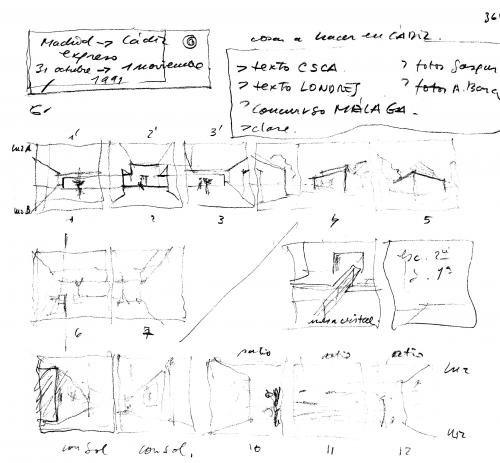 36
Madrid → Cádiz
expreso
31 octubre → 1 noviembre
1991
cosas a hacer en CÁDIZ.
> texto CSCA.
> fotos Gaspar
> texto LONDRES
> fotos A. Barq
> concurso MÁLAGA.
> clase.
1' 2' 3'
luz A
luz B
1 2 3 4 5
mesa cristal
esc. 2ª
1ª
6 7
patio patio patio
luz
luz
con Sol con sol. 10 11 12